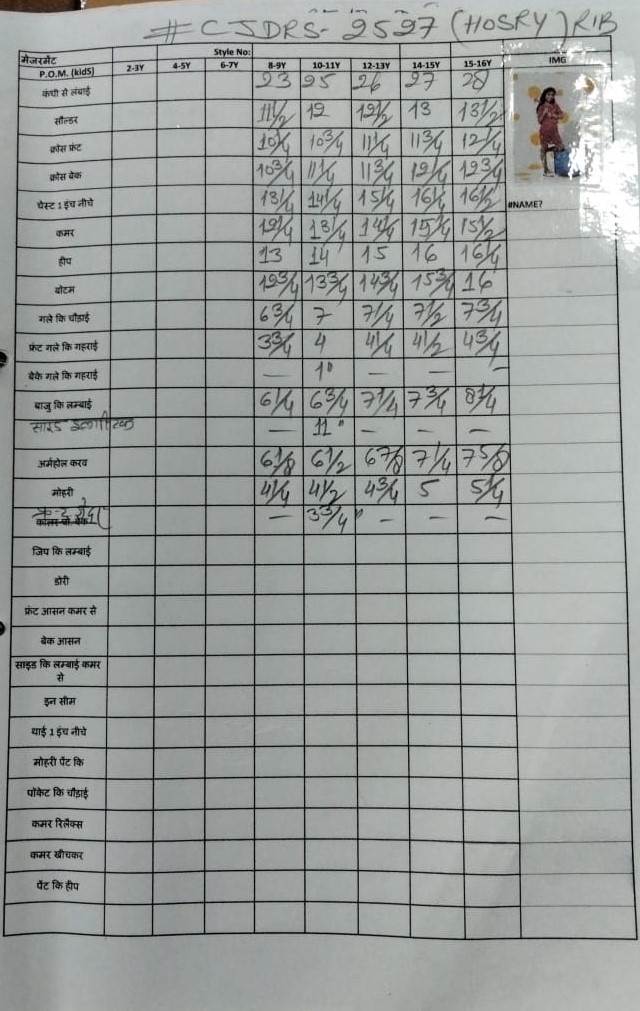 # CJDRS-2527 (HOSRY) RIB
मेजरमेंट Style No:
P.O.M. (kidS) 2-3Y 4-5Y 6-7Y 8-9Y 10-11Y 12-13Y 14-15Y 15-16Y IMG
कंधी से लंबाई 23 25 26 27 28
सौल्डर 11½ 12 12½ 13 13½
क्रोस फ्रंट 10¼ 10¾ 11¼ 11¾ 12¼
क्रोस बेक 10¾ 11¼ 11¾ 12¼ 12¾
चेस्ट 1 इंच नीचे 13¼ 14¼ 15¼ 16¼ 16½ #NAME?
कमर 12¼ 13¼ 14¼ 15¼ 15½
हीप 13 14 15 16 16¼
बोटम 12¾ 13¾ 14¾ 15¾ 16
गले कि चौड़ाई 6¾ 7 7¼ 7½ 7¾
फ्रंट गले कि गहराई 3¾ 4 4¼ 4½ 4¾
बेके गले कि गहराई — 1" — — —
बाजु कि लम्बाई 6¼ 6¾ 7¼ 7¾ 8¼
साइड — 11" — — —
अर्महोल करव 6⅛ 6½ 6⅞ 7¼ 7⅝
मोहरी 4¼ 4½ 4¾ 5 5¼
— 3¾" — — —
जिप कि लम्बाई
डोरी
फ्रंट आसन कमर से
बेक आसन
साइड कि लम्बाई कमर
से
इन सीम
थाई 1 इंच नीचे
मोहरी पेंट कि
पोकेट कि चौड़ाई
कमर रिलैक्स
कमर खीचकर
पेंट कि हीप